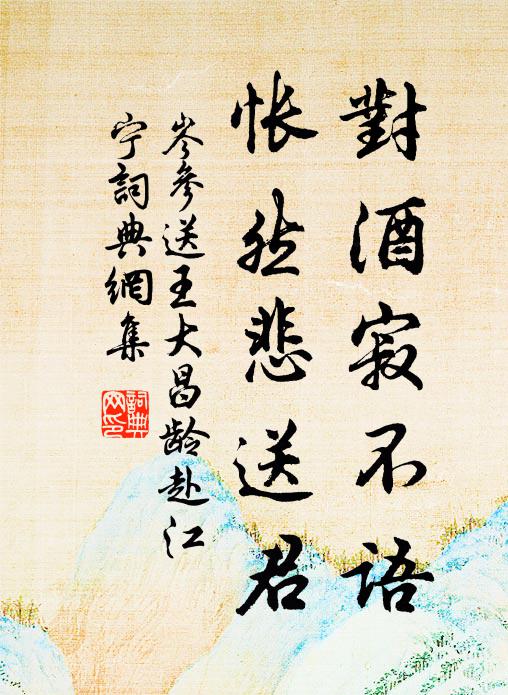 對酒寂不語
悵然悲送君
岑參送王大昌龄赴江
宁詞典網集
詞典
网印